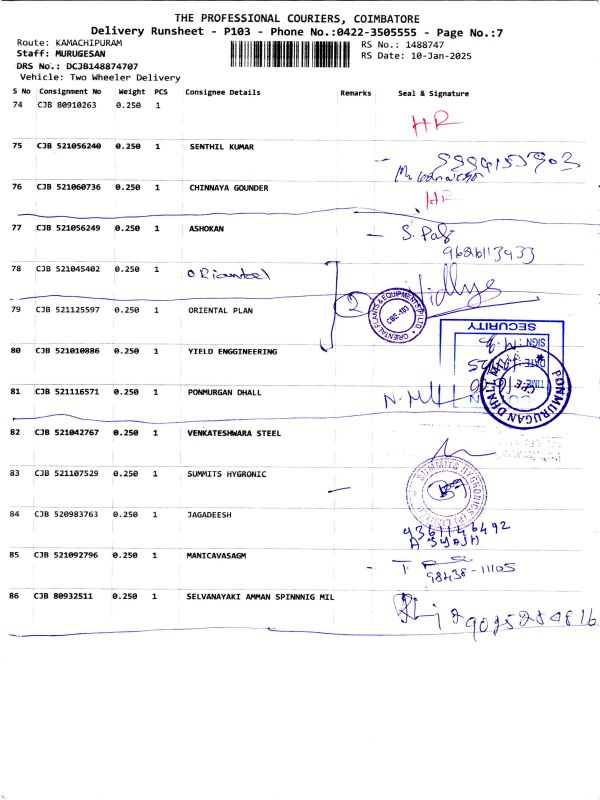 THE PROFESSIONAL COURIERS, COIMBATORE
Delivery Runsheet - P103 - Phone No.:0422-3505555 - Page No.:7
Route: KAMACHIPURAM RS No.: 1488747
Staff: MURUGESAN RS Date: 10-Jan-2025
DRS No.: DCJB148874707
Vehicle: Two Wheeler Delivery
S No Consignment No Weight PCS Consignee Details Remarks Seal & Signature
74 CJB 80910263 0.250 1
HR
75 CJB 521056240 0.250 1 SENTHIL KUMAR
76 CJB 521060736 0.250 1 CHINNAYA GOUNDER HR
77 CJB 521056249 0.250 1 ASHOKAN
9626113433
78 CJB 521045402 0.250 1 ORiantel
Vidhya
79 CJB 521125597 0.250 1 ORIENTAL PLAN 2
ORIENTAL PLANTS & EQUIPMENTS (P) LTD
CBE-103
SECURITY
SIGN :
DATE
TIME
80 CJB 521010886 0.250 1 YIELD ENGGINEERING
81 CJB 521116571 0.250 1 PONMURGAN DHALL
PONMURUGAN DHALL
82 CJB 521042767 0.250 1 VENKATESHWARA STEEL
83 CJB 521107529 0.250 1 SUMMITS HYGRONIC
SUMMITS HYGRONICS (P) LIMITED
84 CJB 520983763 0.250 1 JAGADEESH
9361146492
85 CJB 521092796 0.250 1 MANICAVASAGM
98438-11105
86 CJB 80932511 0.250 1 SELVANAYAKI AMMAN SPINNNIG MIL